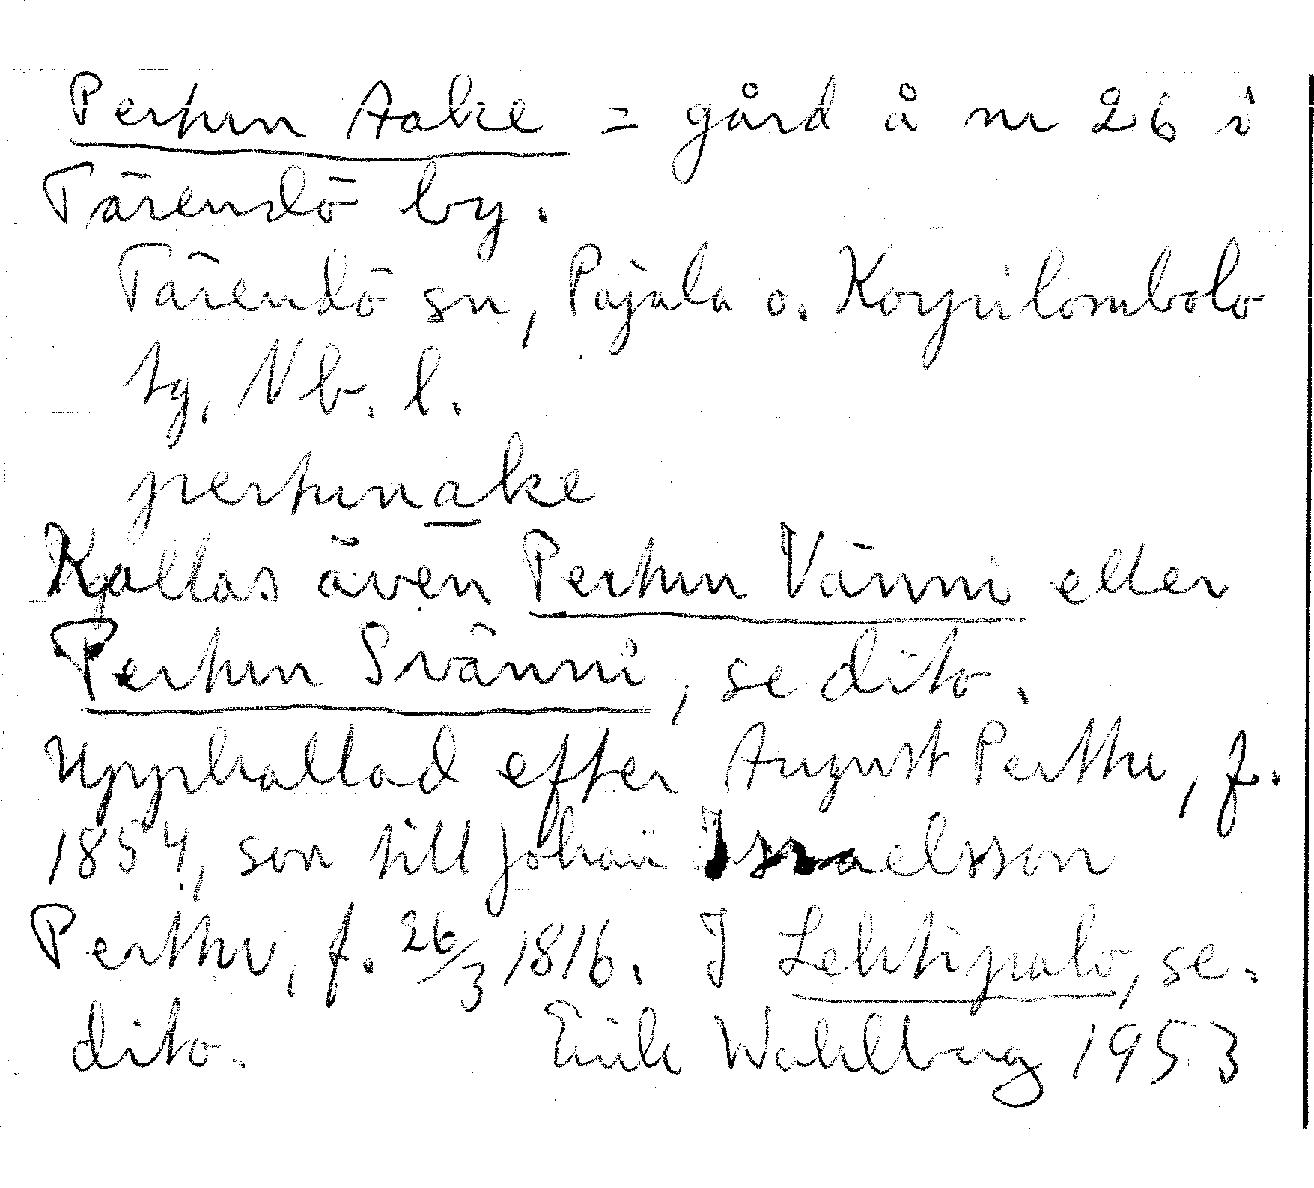 Perttun Aake = gård å nr 26 i
Tärendö by.
Tärendö sn, Pajala o. Korpilombolo
tg, Nb. l.
perttunake
Kallas även Perttun Vänni eller
Perttun Svänni, se dito.
Uppkallad efter August Perttu, f.
1854, son till Johan Israelsson
Perttu, f. 26/3 1816. I Lehtipalo, se
dito. Erik Wahlberg 1953